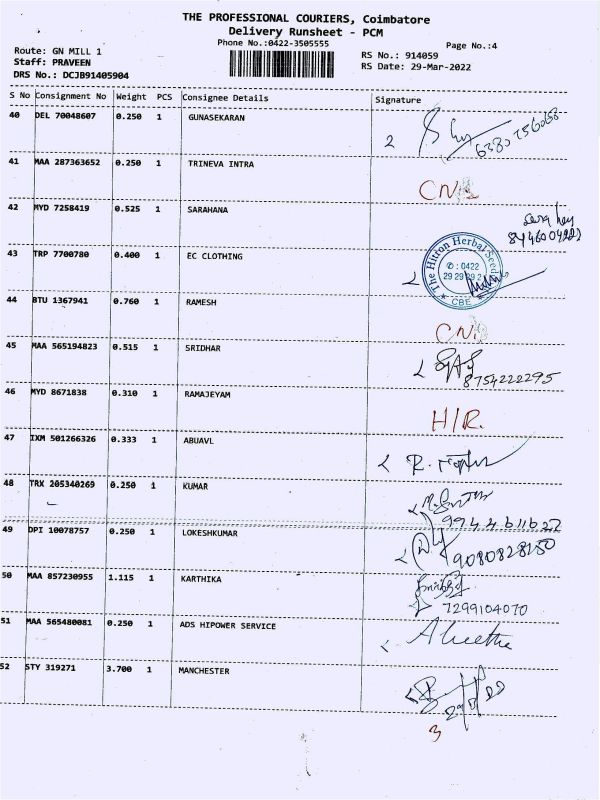 THE PROFESSIONAL COURIERS, Coimbatore
Delivery Runsheet - PCM
Phone No.:0422-3505555
Page No.:4
Route: GN MILL 1
Staff: PRAVEEN
DRS No.: DCJB91405904
RS No.: 914059
RS Date: 29-Mar-2022
S No Consignment No Weight PCS Consignee Details Signature
40 DEL 70048607 0.250 1 GUNASEKARAN
6380756068
41 MAA 287363652 0.250 1 TRINEVA INTRA
42 MYD 7258419 0.525 1 SARAHANA
43 TRP 7700780 0.400 1 EC CLOTHING
The Hitron Herbal Seeds
✆ : 0422
★ CBE ★
44 BTU 1367941 0.760 1 RAMESH
45 MAA 565194823 0.515 1 SRIDHAR
8754222295
46 MYD 8671838 0.310 1 RAMAJEYAM
H/R.
47 IXM 501266326 0.333 1 ABUAVL
48 TRX 205340269 0.250 1 KUMAR
9944611627
49 DPI 10078757 0.250 1 LOKESHKUMAR
9080828150
50 MAA 857230955 1.115 1 KARTHIKA
7299104070
51 MAA 565480081 0.250 1 ADS HIPOWER SERVICE
52 STY 319271 3.700 1 MANCHESTER
3